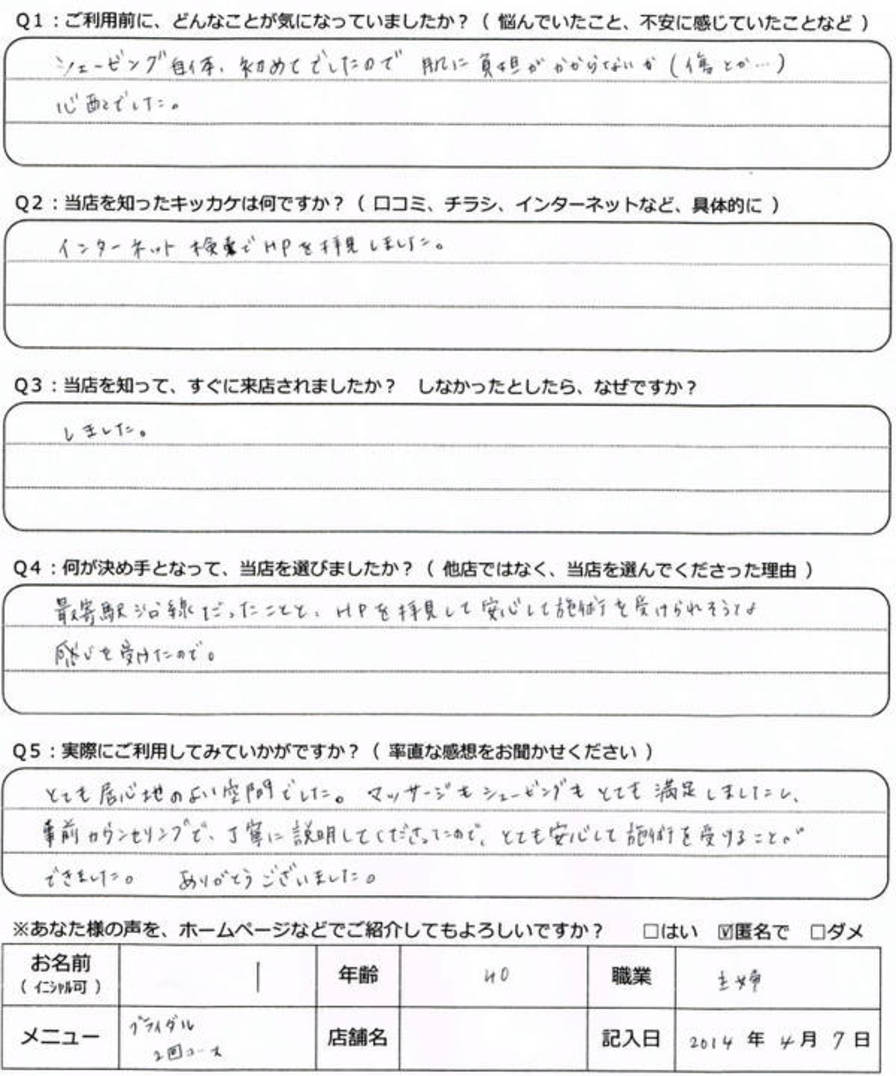 Q1：ご利用前に、どんなことが気になっていましたか？（ 悩んでいたこと、不安に感じていたことなど ）
シェービング自体、初めてでしたので 肌に負担がかからないか（傷とか…）
心配でした。
Q2：当店を知ったキッカケは何ですか？（ 口コミ、チラシ、インターネットなど、具体的に ）
インターネット検索でHPを拝見しました。
Q3：当店を知って、すぐに来店されましたか？　しなかったとしたら、なぜですか？
しました。
Q4：何が決め手となって、当店を選びましたか？（ 他店ではなく、当店を選んでくださった理由 ）
最寄駅沿線だったことと、HPを拝見して安心して施術を受けられそうな
感じを受けたので。
Q5：実際にご利用してみていかがですか？（ 率直な感想をお聞かせください ）
とても居心地のよい空間でした。マッサージもシェービングもとても満足しましたし、
事前カウンセリングで、丁寧に説明してくださったので、とても安心して施術を受けることが
できました。　ありがとうございました。
※あなた様の声を、ホームページなどでご紹介してもよろしいですか？　□はい　☑匿名で　□ダメ
お名前（ｲﾆｼｬﾙ可） 年齢 40 職業 主婦
メニュー ブライダル 2回コース 店舗名 記入日 2014 年 4 月 7 日